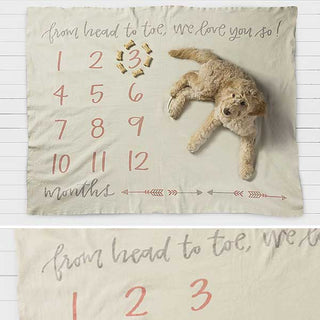 from head to toe, we love you so!
1 2 3
4 5 6
7 8 9
10 11 12
months
from head to toe, we lo
1 2 3